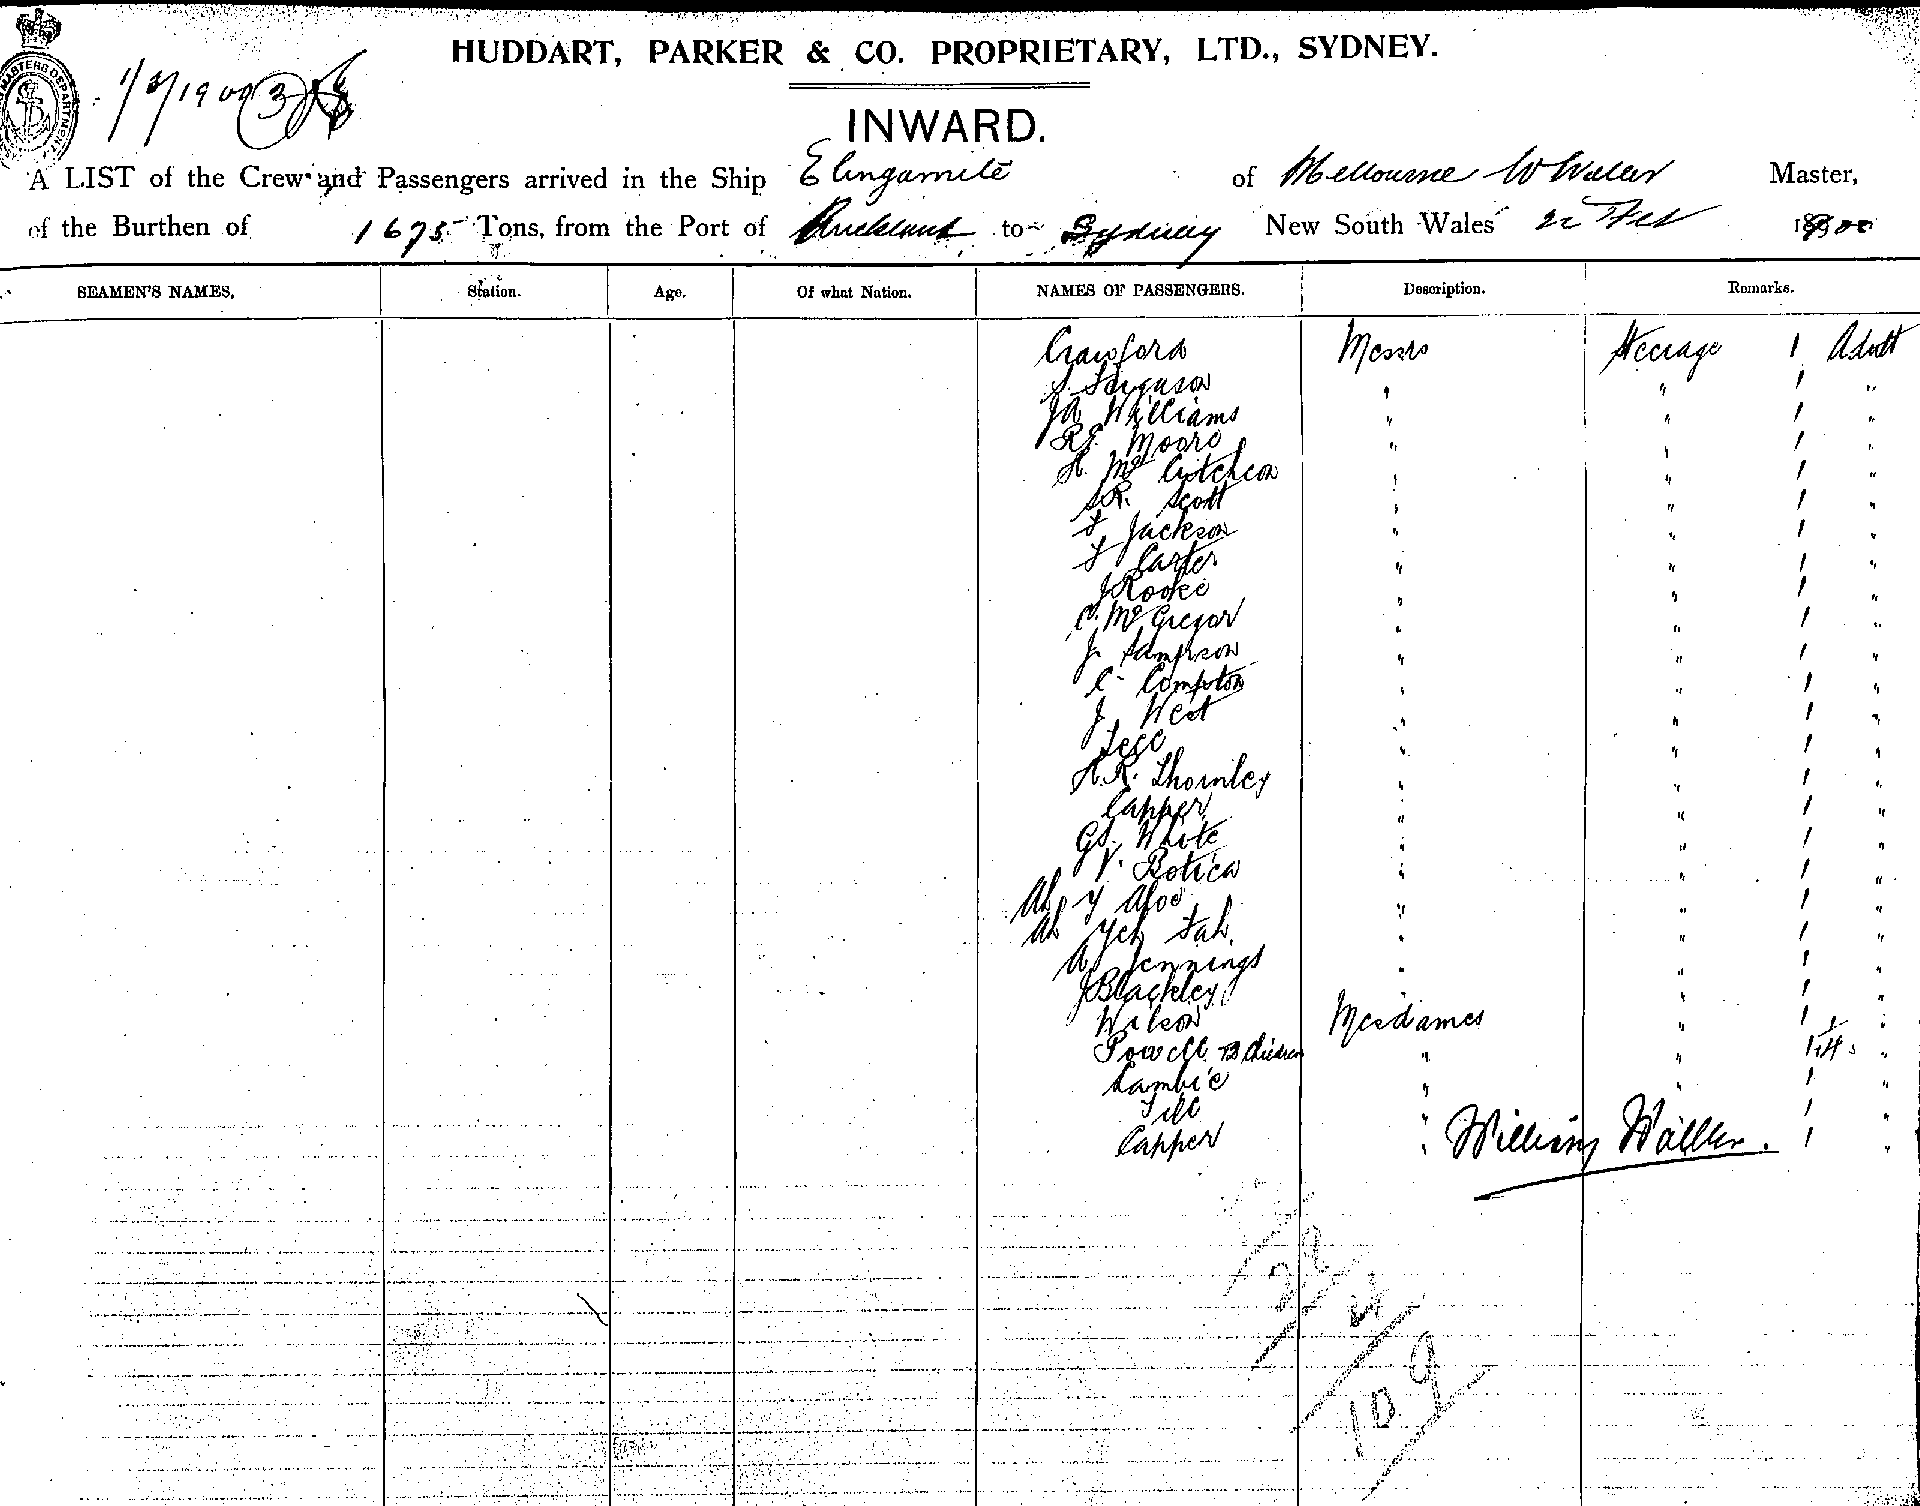 HUDDART, PARKER & CO. PROPRIETARY, LTD., SYDNEY.
1/3/1900 3
INWARD.
A LIST of the Crew and Passengers arrived in the Ship Elingamite of Melbourne W Waller Master,
of the Burthen of 1675 Tons, from the Port of Auckland to Sydney New South Wales 22 Feb 1900
SEAMEN'S NAMES. Station. Age. Of what Nation. NAMES OF PASSENGERS. Description. Remarks.
Crawford Messrs Steerage 1 Adult
S. Ferguson " " 1 "
JA Williams " " 1 "
RE Moore " " 1 "
H. Mc Cutcheon " " 1 "
S.R. Scott " " 1 "
F Jackson " " 1 "
F Carter " " 1 "
J Rooke " " 1 "
C. McGregor " " 1 "
J. Sampson " " 1 "
C. Compton " " 1 "
J. West " " 1 "
" " 1 "
H.R. Thornley " " 1 "
Capper " " 1 "
GS. White " " 1 "
V. Botica " " 1 "
Ah Y " " 1 "
Ah Yeh Fah. " " 1 "
A Jennings " " 1 "
J Blackley " " 1 "
Wilson Mesdames " 1 "
Powell 3 Children " " 1 "
Lambie " " 1 "
" 1 "
Capper " 1 "
William Waller.
22
109